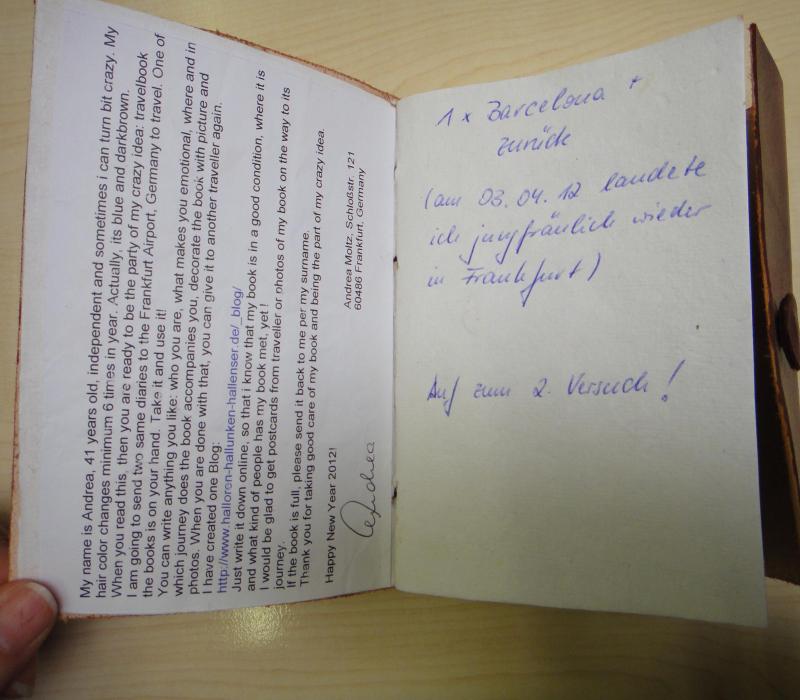 My name is Andrea, 41 years old, independent and sometimes i can turn bit crazy. My
hair color changes minimum 6 times in year. Actually, its blue and darkbrown.
When you read this, then you are ready to be the party of my crazy idea: travelbook
I am going to send two same diaries to the Frankfurt Airport, Germany to travel. One of
the books is on your hand. Take it and use it!
You can write anything you like: who you are, what makes you emotional, where and in
which journey does the book accompanies you, decorate the book with picture and
photos. When you are done with that, you can give it to another traveller again.
I have created one Blog:
http://www.halloren-hallunken-hallenser.de/_blog/
Just write it down online, so that i know that my book is in a good condition, where it is
and what kind of people has my book met, yet !
I would be glad to get postcards from traveller or photos of my book on the way to its
journey.
If the book is full, please send it back to me per my surname.
Thank you for taking good care of my book and being the part of my crazy idea.
Happy New Year 2012!
Andrea
Andrea Moltz, Schloßstr. 121
60486 Frankfurt, Germany
1 x Barcelona +
zurück
(am 03.04.12 landete
ich jungfräulich wieder
in Frankfurt)
Auf zum 2. Versuch!